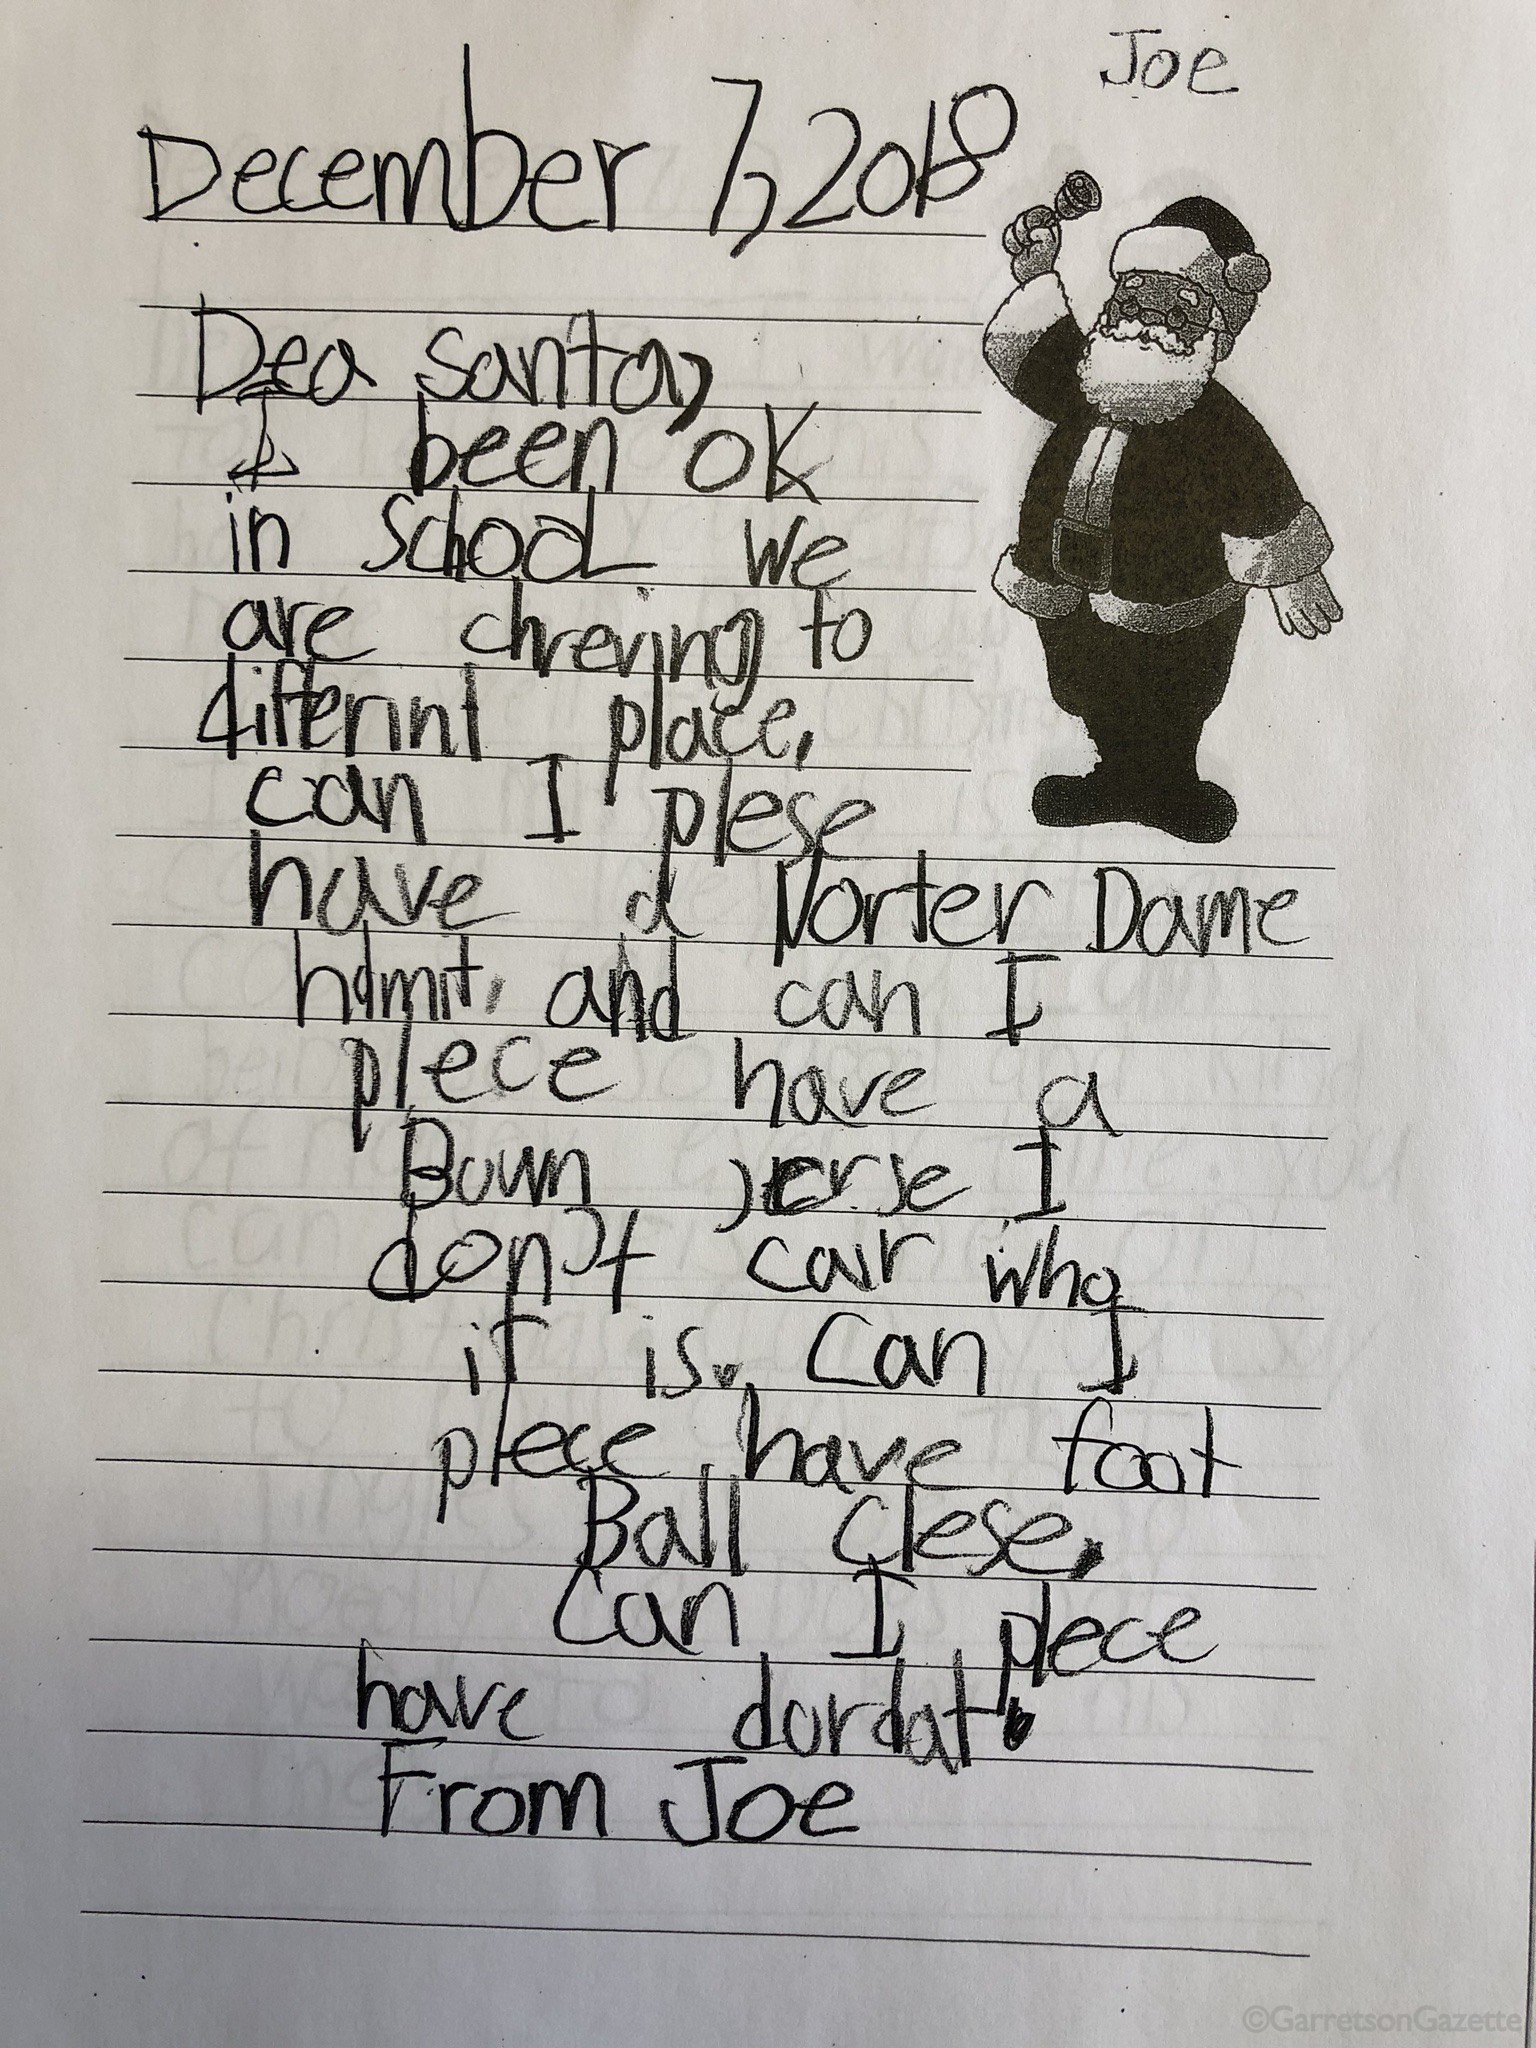 Joe
December 7, 2018
Dea Santa,
I been ok
in school. we
are chreving to
diffrerint place.
can I plese
have a Norter Dame
hdmit. and can I
plece have a
Bown jerse I
don't cair who
it is. Can I
plece have foot
Ball Clese.
Can I plece
have dordat.
From Joe
©GarretsonGazette